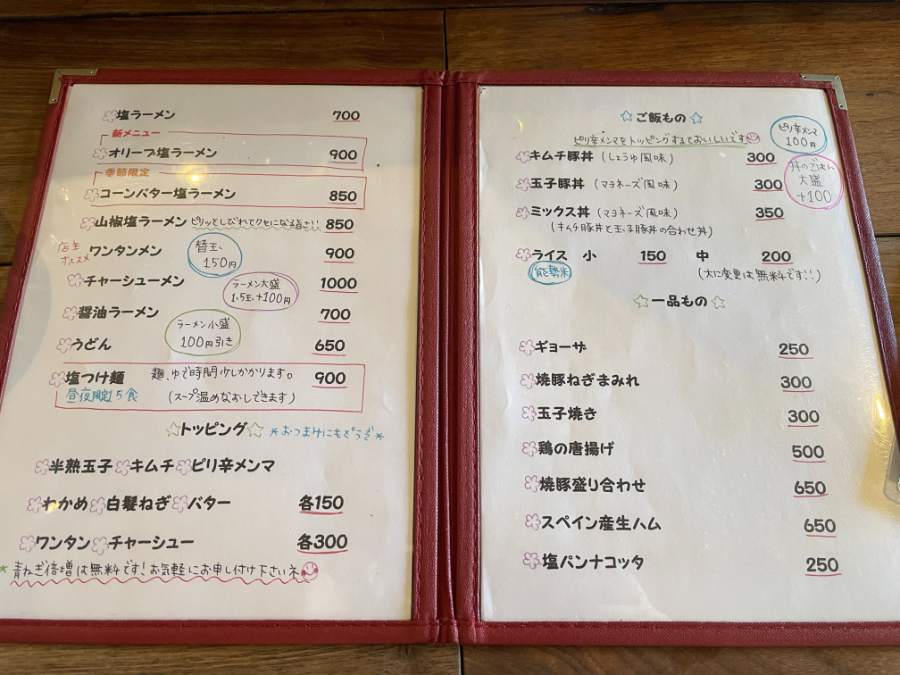 塩ラーメン 700
新メニュー
オリーブ塩ラーメン 900
季節限定
コーンバター塩ラーメン 850
山椒塩ラーメン ピリッとしびれてクセになる旨さ!! 850
店主オススメ
ワンタンメン 900
替玉、150円
チャーシューメン 1000
ラーメン大盛 1.5玉、+100円
醤油ラーメン 700
ラーメン小盛 100円引き
うどん 650
塩つけ麺 麺、ゆで時間少しかかります。 900
昼夜限定5食 (スープ温めなおしできます)
トッピング *おつまみにもどうぞ*
半熟玉子 キムチ ピリ辛メンマ
わかめ 白髪ねぎ バター 各150
ワンタン チャーシュー 各300
*青ねぎ倍増は無料です!お気軽にお申し付け下さいネ
☆ご飯もの☆
ピリ辛メンマをトッピングするておいしいです
ピリ辛メンマ 100円
キムチ豚丼 (しょうゆ風味) 300
丼のごはん大盛 +100
玉子豚丼 (マヨネーズ風味) 300
ミックス丼 (マヨネーズ風味) 350
(キムチ豚丼と玉子豚丼の合わせ丼)
ライス 小 150 中 200
能勢米 (大に変更は無料です!!)
☆一品もの☆
ギョーザ 250
焼豚ねぎまみれ 300
玉子焼き 300
鶏の唐揚げ 500
焼豚盛り合わせ 650
スペイン産生ハム 650
塩パンナコッタ 250